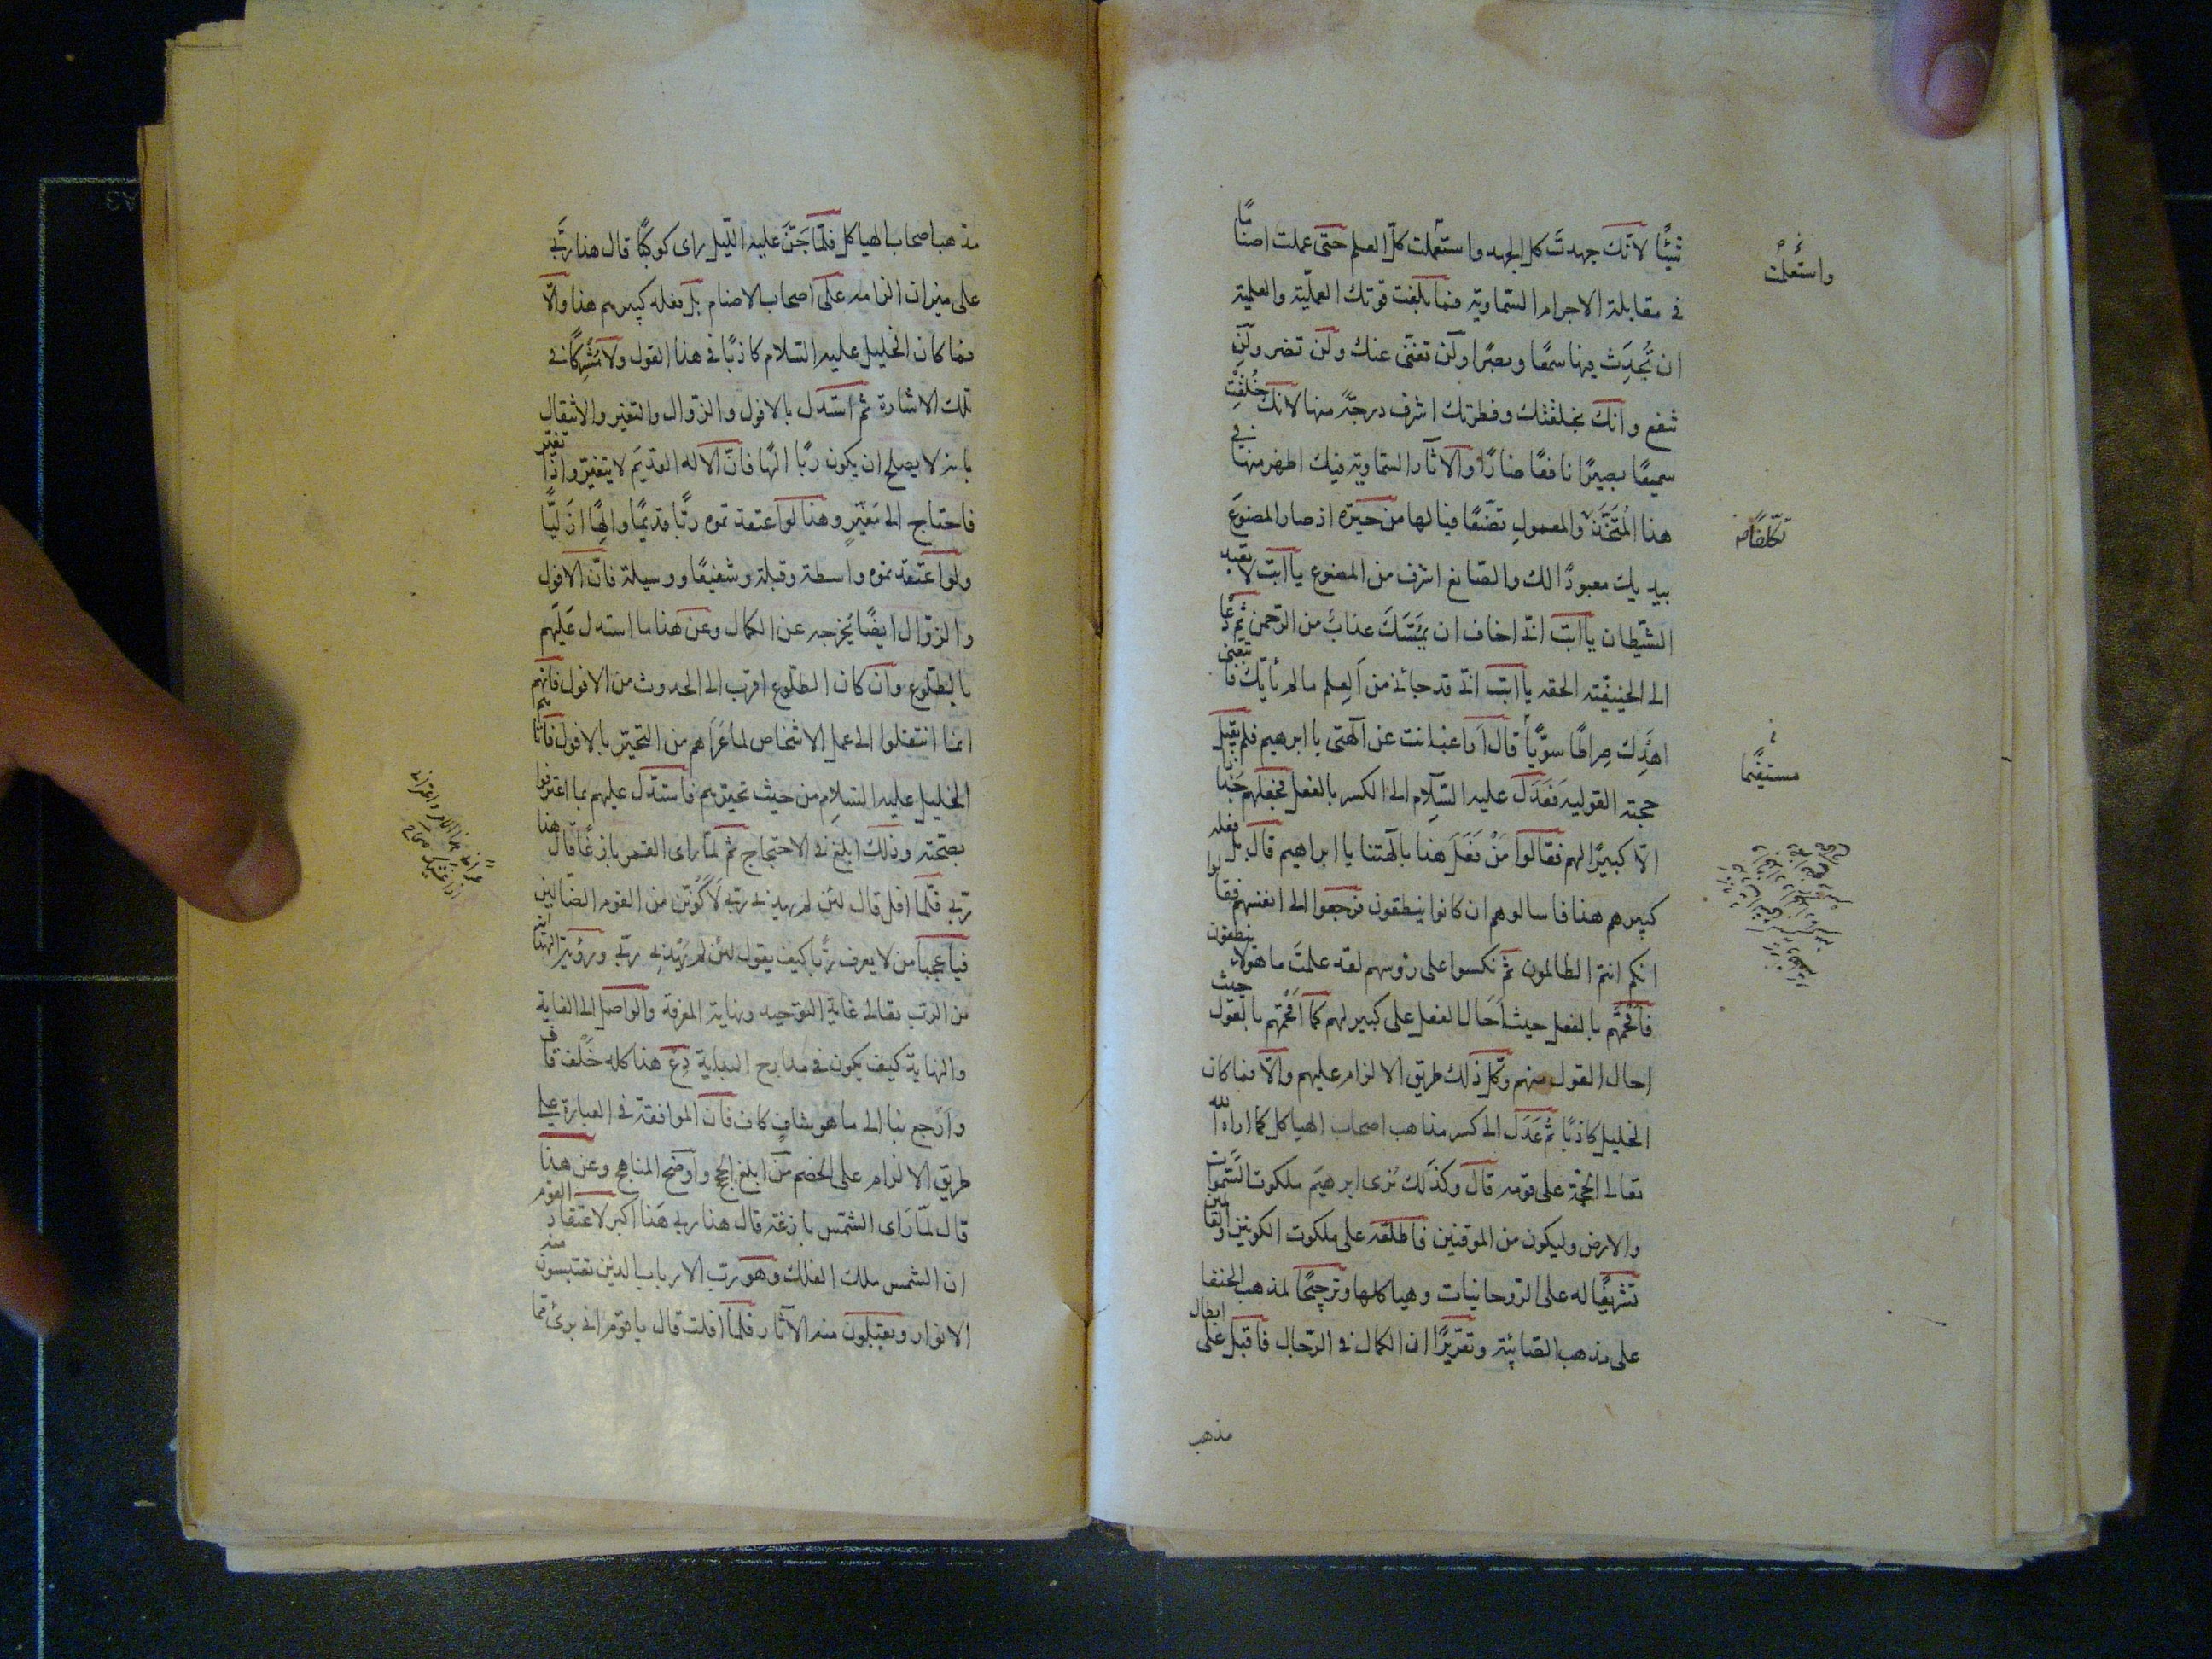 شيئًا لانّك جهدتَ كل الجهد واستعملت كلّ العلم حتى عملت اصنامًا
في مقابلة الاجرام السّماوية فما بلغت قوتك العمليّة والعلمية
ان تُحدِث فيها سمعًا وبصرًا ولن تغنى عنك ولن تضر ولن
تنفع وانك بخلقتك وفطرتك اشرف درجةً منها لانك خُلقت
سميعًا بصيرًا نافعًا ضارًا والآثار السّماوية فيك اظهر منها في
هذا المُتّخَذ والمعمولِ تصنّعًا فيا لها من حيرة اذ صار المصنوع
بيديك معبودًا لك والصّانع اشرف من المصنوع يا ابت لا تعبد
الشّيطان يا ابت انّى اخاف ان يمسّك عذابٌ من الرّحمن ثم دعا
الى الحنيفيّة الحقه يا ابت انّى قد جائنى من العلم ما لم يأتك فاتبعنى
اهدك صِراطًا سويًّا قال اراغب انت عن آلهتى يا ابرهيم فلم يقبل
حجته القوليه فعدل عليه السّلام الى الكسر بالفعل فجعلهم جذاذًا
الّا كبيرًا لهم فقالوا مَنْ فعَلَ هذا بآلهتنا يا ابراهيم قال بل فعله
كبيرهم هذا فاسالوهم ان كانوا ينطقون فرجعوا الى انفسهم فقالوا
انكم انتم الظالمون ثمّ نكسوا على رؤسهم لقد علمتَ ما هؤلاء ينطقون
فافحمَهم بالفعل حيث اَحَال الفعل على كبير لهم كما افحمَهم بالقول حيث
احال القول منهم وكلّ ذلك طريق الالزام عليهم والّا فما كان
الخليل كاذبًا ثم عَدَل الى كسر مذاهب اصحاب الهياكل كما اراه الله
تعالى الحجّة على قومه قال وكذلك نرى ابرهيمَ ملكوت السّموات
والارض وليكون من الموقنين فاطلعه على ملكوت الكونين والعالمين
تشريفًا له على الرّوحانيات وهياكلها وترجيحًا لمذهب الحنفا
على مذهب الصّابئة وتقريرًا ان الكمال في الرّجال فاقبل على ابطال
مذهب
واستعملتْ
تكلّفًا
مستقيمًا
مذهب اصحاب الهياكل فلمّا جَنّ عليه اللّيل راى كوكبًا قال هذا ربّى
على ميزان الزامه على اصحاب الاصنام بل فعله كبيرهم هذا والّا
فما كان الخليل عليه السّلام كاذبًا فى هذا القول ولا مُشْرِكًا فى
تلك الاشارة ثم استدل بالافول والزّوال والتغير والانتقال
بانه لا يصلح ان يكون ربًّا الٰهًا فانّ الاله القديم لا يتغيّر واذا تغيّر
فاحتاج الى مغيّرٍ وهذا لو اعتقدتموه ربًّا قديمًا والهًا ازَليًّا
ولو اعتقدتموه واسطة وقبلة وشفيعًا ووسيلة فانّ الافول
والزّوال ايضًا يُخرجه عن الكمال وعن هذا ما استدل عليهم
بالطّلوع وان كان الطّلوع اقرب الى الحدوث من الافول فانّهم
انما انتقلوا الى عمل الاشخاص لما عَرَاهم من التحيّر بالافول فاتاهم
الخليل عليه السّلام من حيث تحيّرهم فاستدلّ عليهم بما اعترفوا
بصحّته وذلك ابلغ فى الاحتجاج ثم لما راى القمر بازغًا قال هذا
ربّى فلمّا افل قال لئن لم يهدنى ربّى لاكوننّ من القوم الضّالين
فيا عجبا من لا يعرف ربًّا كيف يقول لئن لم يهدنى ربّى ورؤية الهداية
من الرب تعالى غاية التوحيد ونهاية المعرفة والواصل الى الغاية
والنهاية كيف يكون فى مدارج البداية دعْ هذا كله خلف قاف
وارجع بنا الى ما هو شافٍ كافٍ فان الموافقة فى العبارة على
طريق الالزام على الخصم من ابلغ الحجج واوضح المناهج وعن هذا
قال لمّا رَاى الشمّس بازغة قال هذا ربى هذا اكبر لاعتقاد القوم
ان الشمس ملك الفلك وهو ربّ الارباب الذين يقتبسون منه
الانوار ويقبلون منه الآثار فلما افلت قال يا قوم انى برئ مما